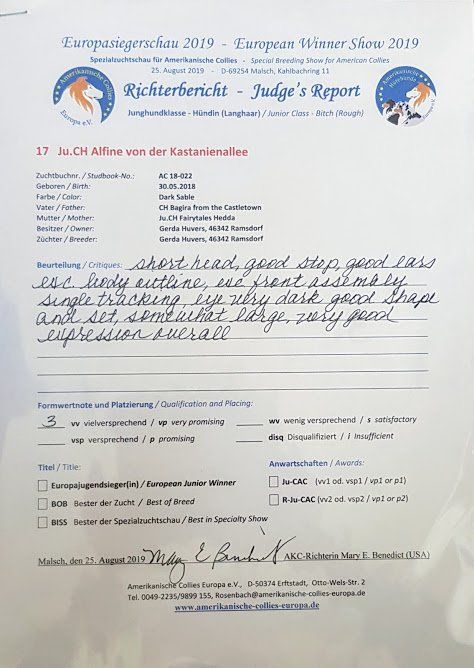 Europasiegerschau 2019 - European Winner Show 2019
Spezialzuchtschau für Amerikanische Collies - Special Breeding Show for American Collies
25. August 2019 - D-69254 Malsch, Kahlbachring 11
Richterbericht - Judge's Report
Junghundklasse - Hündin (Langhaar) / Junior Class - Bitch (Rough)
Amerikanische Collies
Europa e.V.
Amerikanische
17 Ju.CH Alfine von der Kastanienallee
Zuchtbuchnr. / Studbook-No.: AC 18-022
Geboren / Birth: 30.05.2018
Farbe / Color: Dark Sable
Vater / Father: CH Bagira from the Castletown
Mutter / Mother: Ju.CH Fairytales Hedda
Besitzer / Owner: Gerda Huvers, 46342 Ramsdorf
Züchter / Breeder: Gerda Huvers, 46342 Ramsdorf
Beurteilung / Critiques: short head, good stop, good ears
exc. body outline, exc front assembly
single tracking, eye very dark good shape
and set, somewhat large, very good
expression overall
Formwertnote und Platzierung / Qualification and Placing:
3 vv vielversprechend / vp very promising
wv wenig versprechend / s satisfactory
vsp versprechend / p promising
disq Disqualifiziert / i Insufficient
Titel / Title:
Anwartschaften / Awards:
Europajugendsieger(in) / European Junior Winner
Ju-CAC (vv1 od. vsp1 / vp1 or p1)
BOB Bester der Zucht / Best of Breed
R-Ju-CAC (vv2 od. vsp2 / vp1 or p2)
BISS Bester der Spezialzuchtschau / Best in Specialty Show
Malsch, den 25. August 2019 Mary E Benedict AKC-Richterin Mary E. Benedict (USA)
Amerikanische Collies Europa e.V., D-50374 Erftstadt, Otto-Wels-Str. 2
Tel. 0049-2235/9899 155, Rosenbach@amerikanische-collies-europa.de
www.amerikanische-collies-europa.de